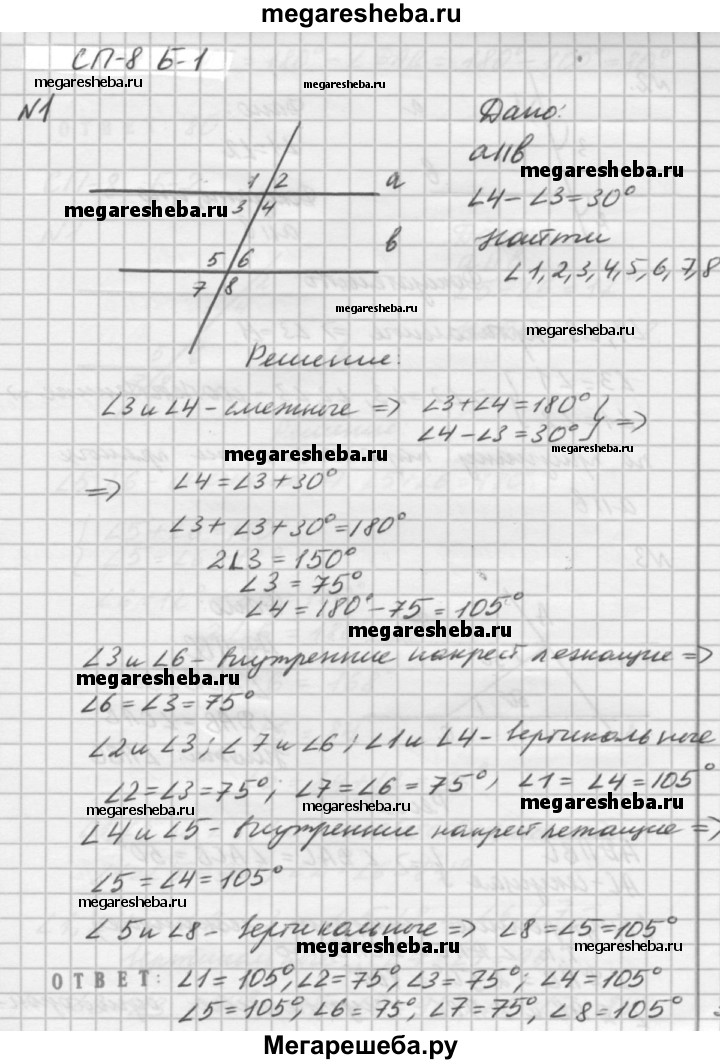 megaresheba.ru
СП-8 Б-1
megaresheba.ru megaresheba.ru
№1
Дано:
a||в
megaresheba.ru
∠4-∠3=30°
Найти
∠1,2,3,4,5,6,7,8
1 2 a
megaresheba.ru
3 4
в
5 6
7 8
megaresheba.ru
megaresheba.ru
Решение:
∠3 и ∠4 - смежные => ∠3+∠4=180°
∠4-∠3=30° } =>
megaresheba.ru
=> ∠4=∠3+30°
∠3+∠3+30°=180°
2∠3=150°
∠3=75°
∠4=180°-75=105°
megaresheba.ru
∠3 и ∠6 - внутренние накрест лежащие =>
∠6=∠3=75°
∠2 и ∠3; ∠7 и ∠6; ∠1 и ∠4 - вертикальные
∠2=∠3=75°; ∠7=∠6=75°, ∠1=∠4=105°
megaresheba.ru megaresheba.ru megaresheba.ru
∠4 и ∠5 - внутренние накрест лежащие =>
∠5=∠4=105°
megaresheba.ru
∠5 и ∠8 - вертикальные => ∠8=∠5=105°
megaresheba.ru megaresheba.ru
ОТВЕТ: ∠1=105°, ∠2=75°, ∠3=75°; ∠4=105°
∠5=105°, ∠6=75°, ∠7=75°, ∠8=105°
megaresheba.ru megaresheba.ru
Мегарешеба.ру